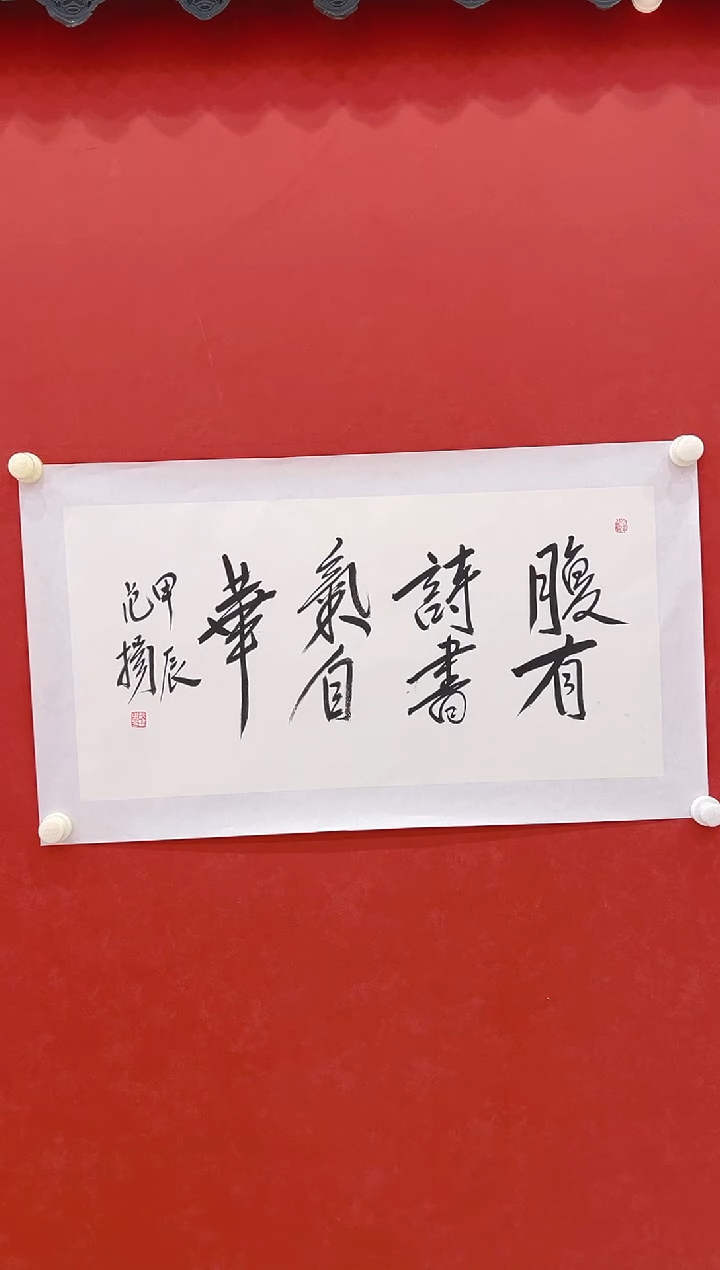 腹有
詩書
氣自
華
甲辰